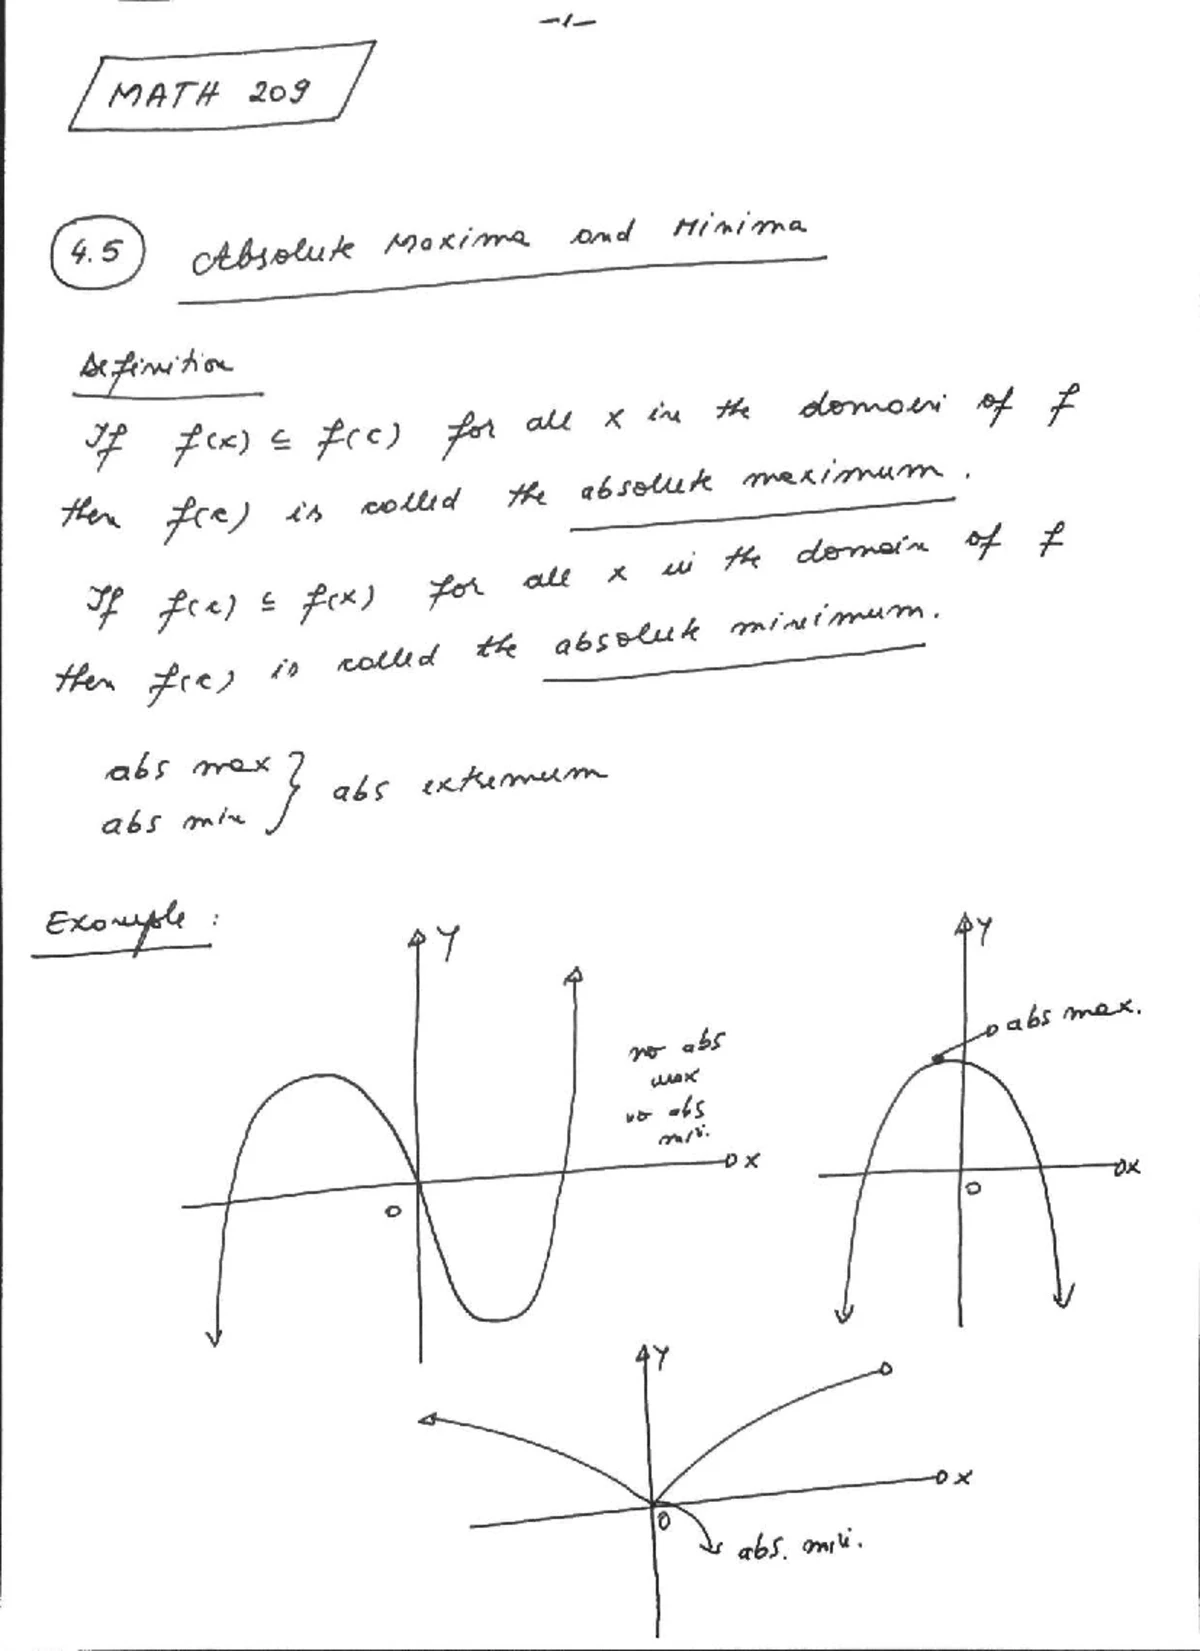 -1-
MATH 209
4.5 Absolute Maxima and Minima
Definition
If f(x) ≤ f(c) for all x in the domain of f
then f(c) is called the absolute maximum.
If f(c) ≤ f(x) for all x in the domain of f
then f(c) is called the absolute minimum.
abs max } abs extremum
abs min
Example:
Y
no abs
max
no abs
min.
x
0
Y
abs max.
x
0
Y
x
0
abs. min.